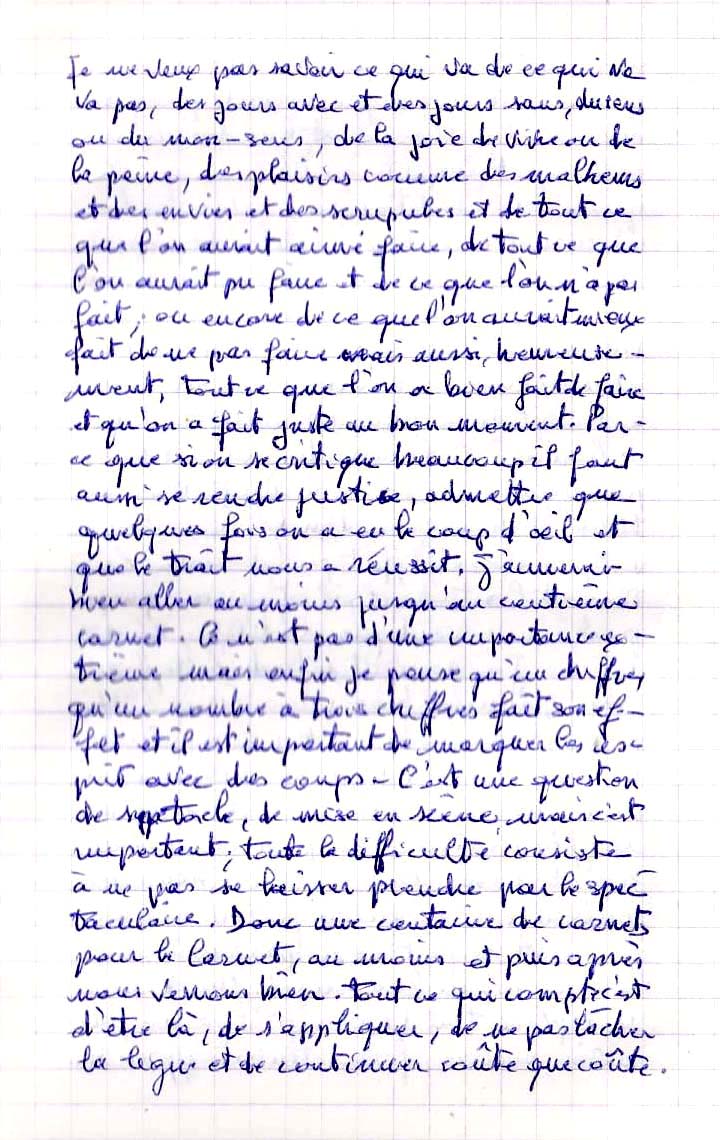 Je ne veux pas savoir ce qui va de ce qui ne
va pas, des jours avec et des jours sans, du sens
ou du non-sens, de la joie de vivre ou de
la peine, des plaisirs comme des malheurs
et des envies et des scrupules et de tout ce
que l'on aurait aimé faire, de tout ce que
l'on aurait pu faire et de ce que l'on n'a pas
fait, ou encore de ce que l'on aurait mieux
fait de ne pas faire mais aussi, heureuse-
ment, tout ce que l'on a bien fait de faire
et qu'on a fait juste au bon moment. Par-
ce que si on se critique beaucoup il faut
aussi se rendre justice, admettre que
quelques fois on a eu le coup d'oeil et
que le trait nous a réussit. J'aimerai
bien aller au moins jusqu'au centième
carnet. Ce n'est pas d'une importance ex-
trème mais enfin je pense qu'un chiffre,
qu'un nombre à trois chiffres fait son ef-
fet et il est important de marquer les es-
prit avec des coups - C'est une question
de spectacle, de mise en scène, mais c'est
important, toute la difficulté consiste
à ne pas se laisser prendre par le spec-
taculaire. Donc une centaine de carnets
pour le Carnet, au moins et puis après
nous verrons bien. Tout ce qui compte c'est
d'être là, de s'appliquer, de ne pas lâcher
la ligne et de continuer coûte que coûte.